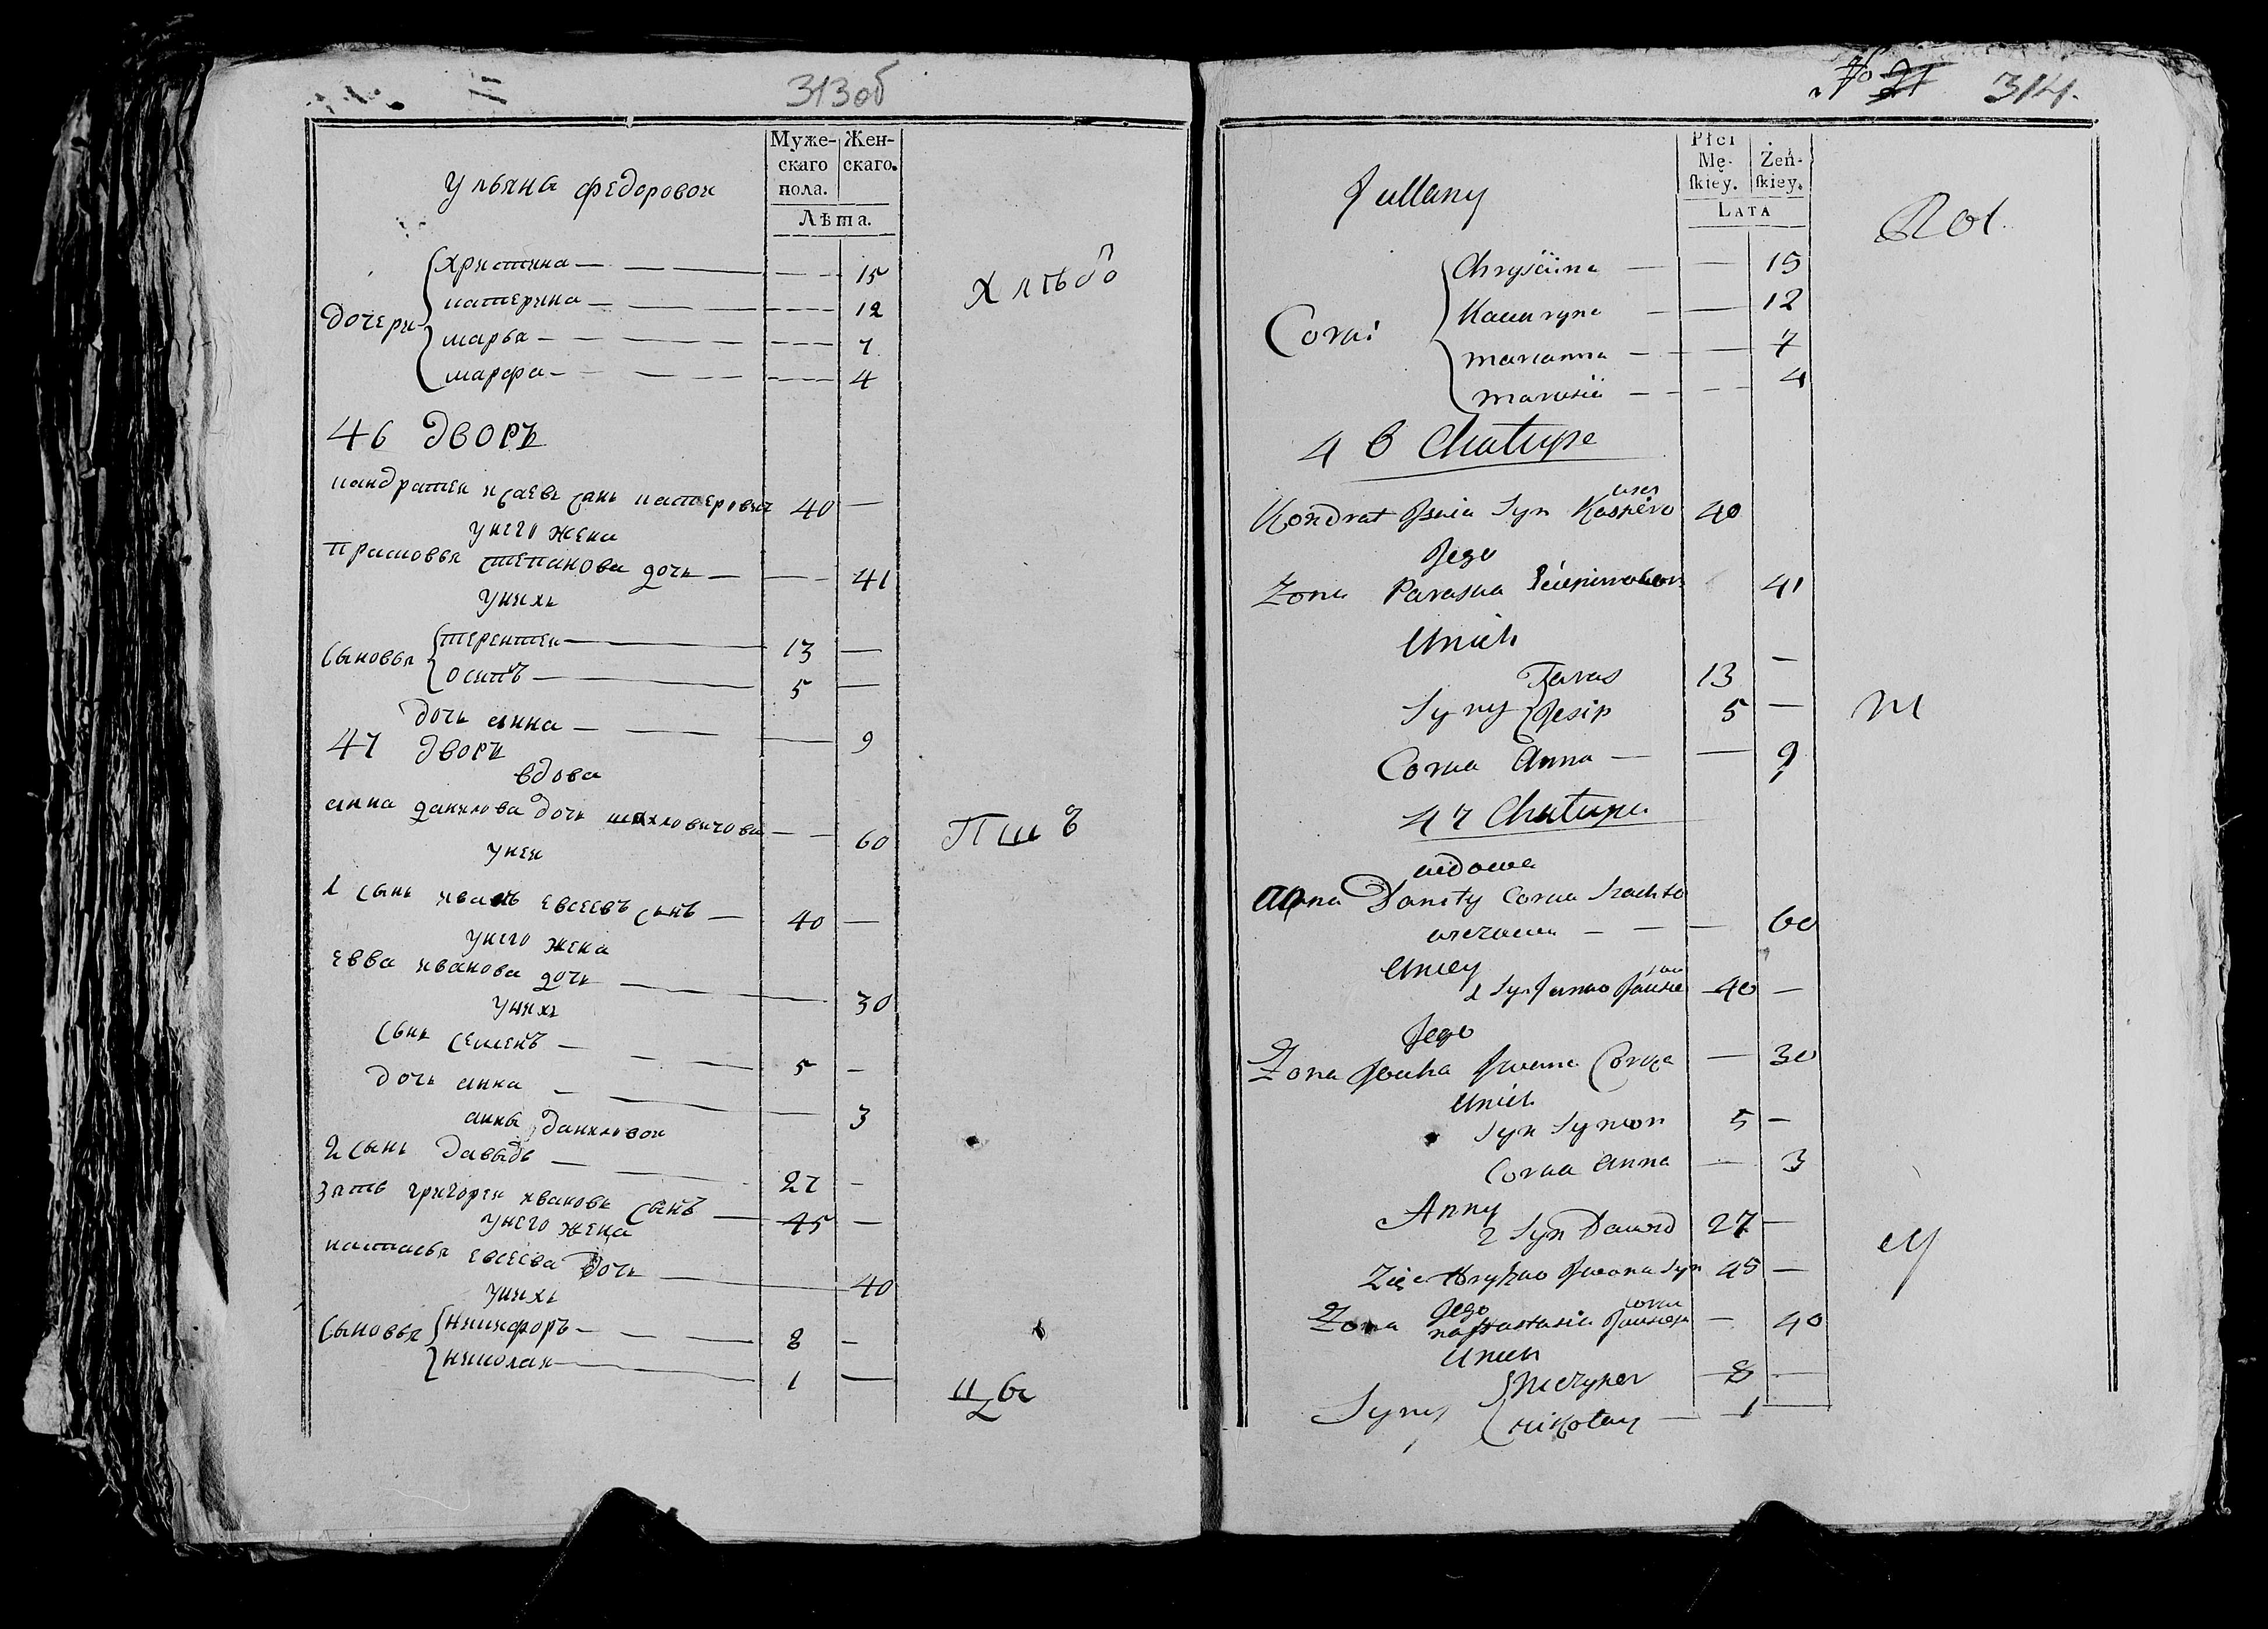 313 об
Муже-
скаго
пола.
Жен-
скаго.
Лѣта.
Ульяны Федоровой
Дочери
Христина — 15
катерина — 12
марья — 7
марфа — 4
Хлѣбо
46 Дворъ
кандратей исаевъ сынъ 40 —
у него жена
прасковья степанова дочь — 41
у нихъ
Сыновья
терентей — 13 —
осипъ — 5 —
дочь анна — 9
47 Дворъ
вдова
анна данилова дочь шахловичова — 60
у ней
1 сынъ иванъ евсеевъ сынъ — 40 —
у него жена
евва иванова дочь — 30
у нихъ
сынъ семенъ — 5 —
дочь анна — 3
анны даниловой
2 сынъ давыдъ — 27 —
зять григорей ивановъ сынъ — 45 —
у него жена
настасья евсеева дочь — 40
у нихъ
Сыновья
никифоръ — 8 —
николай — 1 —
No 21 314.
Płci
Mę-
ſkiey.
Żeń-
ſkiey.
Lata
Jullany
Corki
Chrysćina — 15
Kataryna — 12
marianna — 7
marusia — 4
46 Chatupa
Kondrat Syn 40
Jego
Zona Paraska 41
Unich
Syny
Taras 13 —
Josip 5 —
Corka Anna — 9
M
47 Chatupa
wdowa
anna Danity Corka Szachto
wiczowa — 60
Uniey
1 Syn 40 —
Jego
Zona Jwana Corka — 30
Unich
Syn Symon 5 —
Corka anna — 3
Anny
2 Syn Dawid 27 —
Zięc Hryhko Jwana Syn 45 —
Jego
Zona nastasia — 40
Unich
Syny
8 —
nikotay — 1